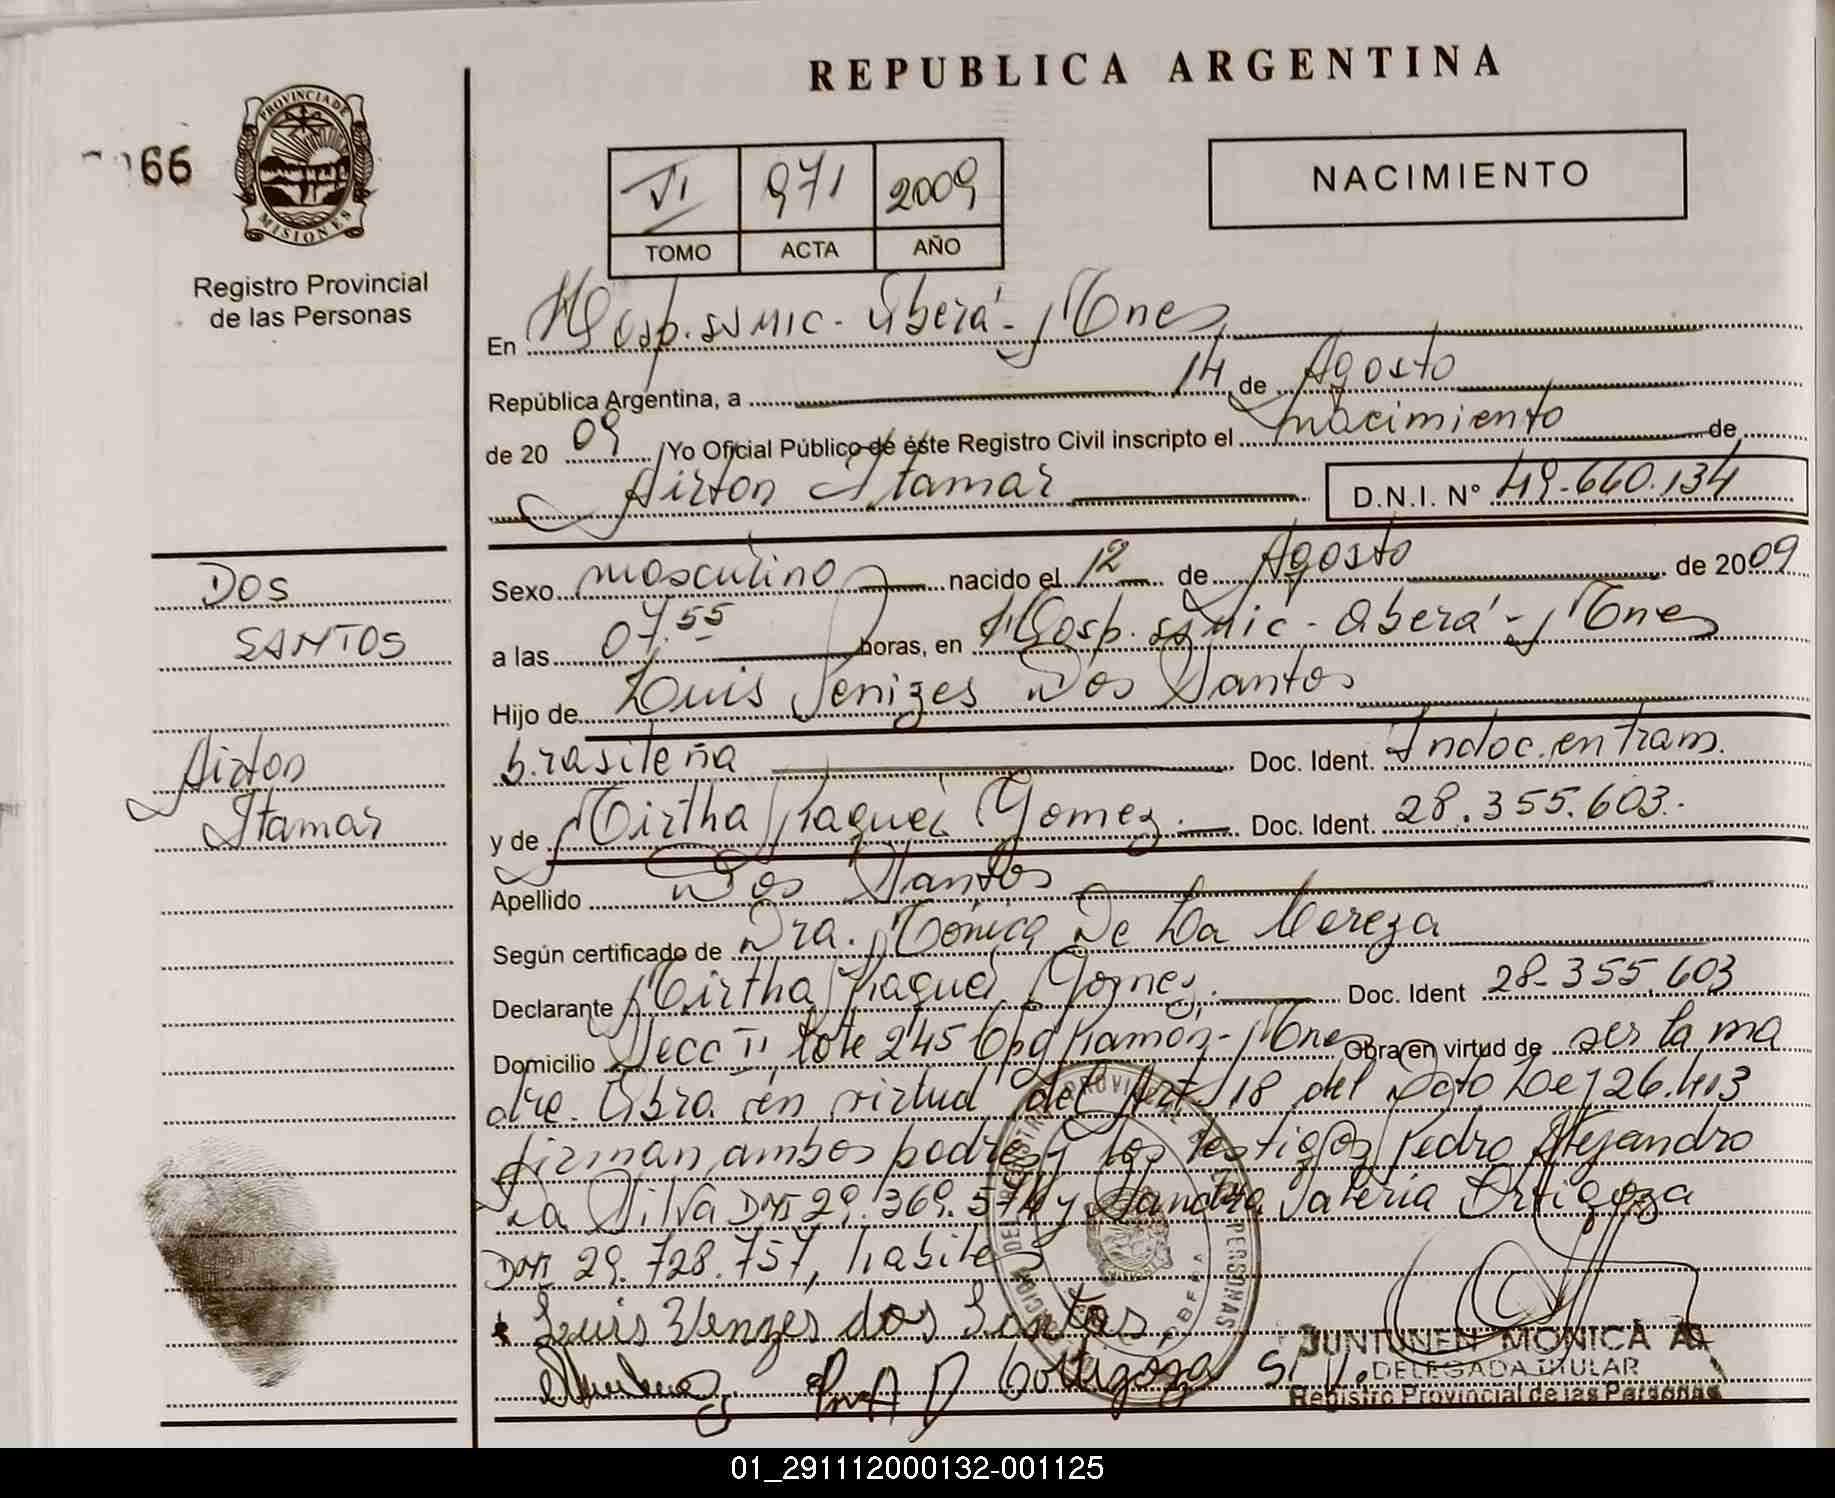 REPUBLICA ARGENTINA
PROVINCIA DE
MISIONES
66
Registro Provincial
de las Personas
VI 971 2009
TOMO ACTA AÑO
NACIMIENTO
En Hosp. SSMIC - Oberá - Mnes
República Argentina, a 14 de Agosto
de 2009 Yo Oficial Público de éste Registro Civil inscripto el nacimiento de
Airton Itamar D.N.I. Nº 49.660.134
DOS
SANTOS
Airton
Itamar
Sexo masculino nacido el 12 de Agosto de 2009
a las 07.55 horas, en Hosp. SSMIC - Oberá - Mnes
Hijo de Luis Venizes Dos Santos
brasileña Doc. Ident. Indoc. en tram.
y de Mirtha Raquel Gomez. Doc. Ident. 28.355.603.
Apellido Dos Santos
Según certificado de Dra. Mónica De La
Declarante Mirtha Raquel Gomez. Doc. Ident 28-355.603
Domicilio Secc II lote 245 Cpo Ramón - Mnes Obra en virtud de ser la ma
dre. Obra en virtud del Art 18 del Dcto Ley 26.413
firman ambos padres y los testigos Pedro Alejandro
Da Silva DNI 29.369.574 y Sandra Valeria Ortigoza
DNI 29.728.757, habiles
Luis Venzes dos Santos
Ortigoza S. V.
JUNTUNEN MONICA A.
DELEGADA TITULAR
Registro Provincial de las Personas
01_291112000132-001125